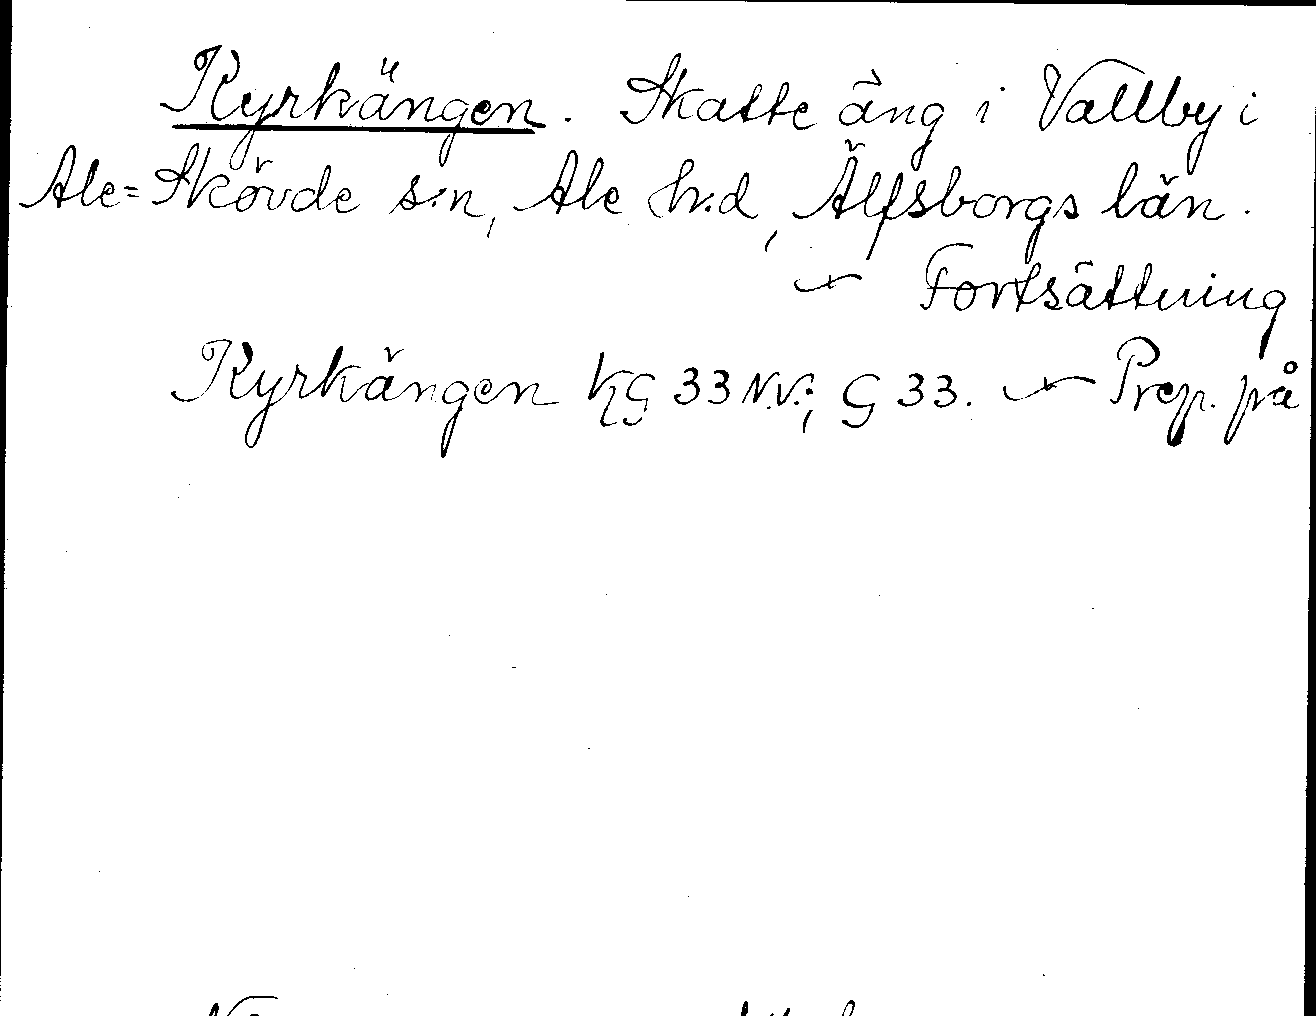 Kyrkängen. Skatte äng i Vallby i
Ale=Skövde s:n, Ale h:d, Älfsborgs län.
— Fortsättning
Kyrkängen KG 33 N.V.; G 33. — Prep. på